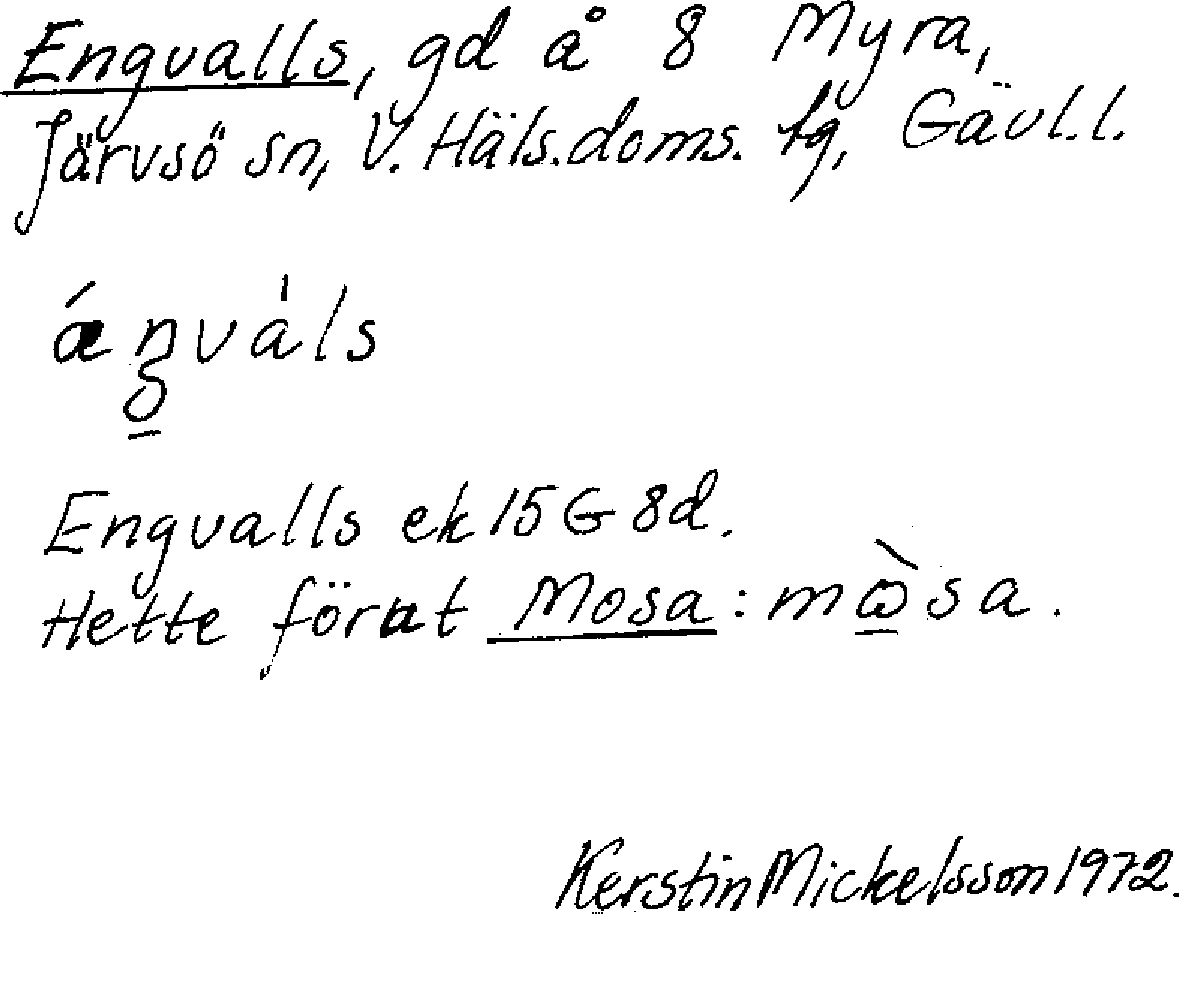 Engvalls, gd å 8 Myra,
Järvsö sn, V. Häls.doms. tg, Gävl.l.
ǽŋvàls
Engvalls ek 15 G 8d.
Hette förut Mosa: mὼ̲sa.
Kerstin Mickelsson 1972.